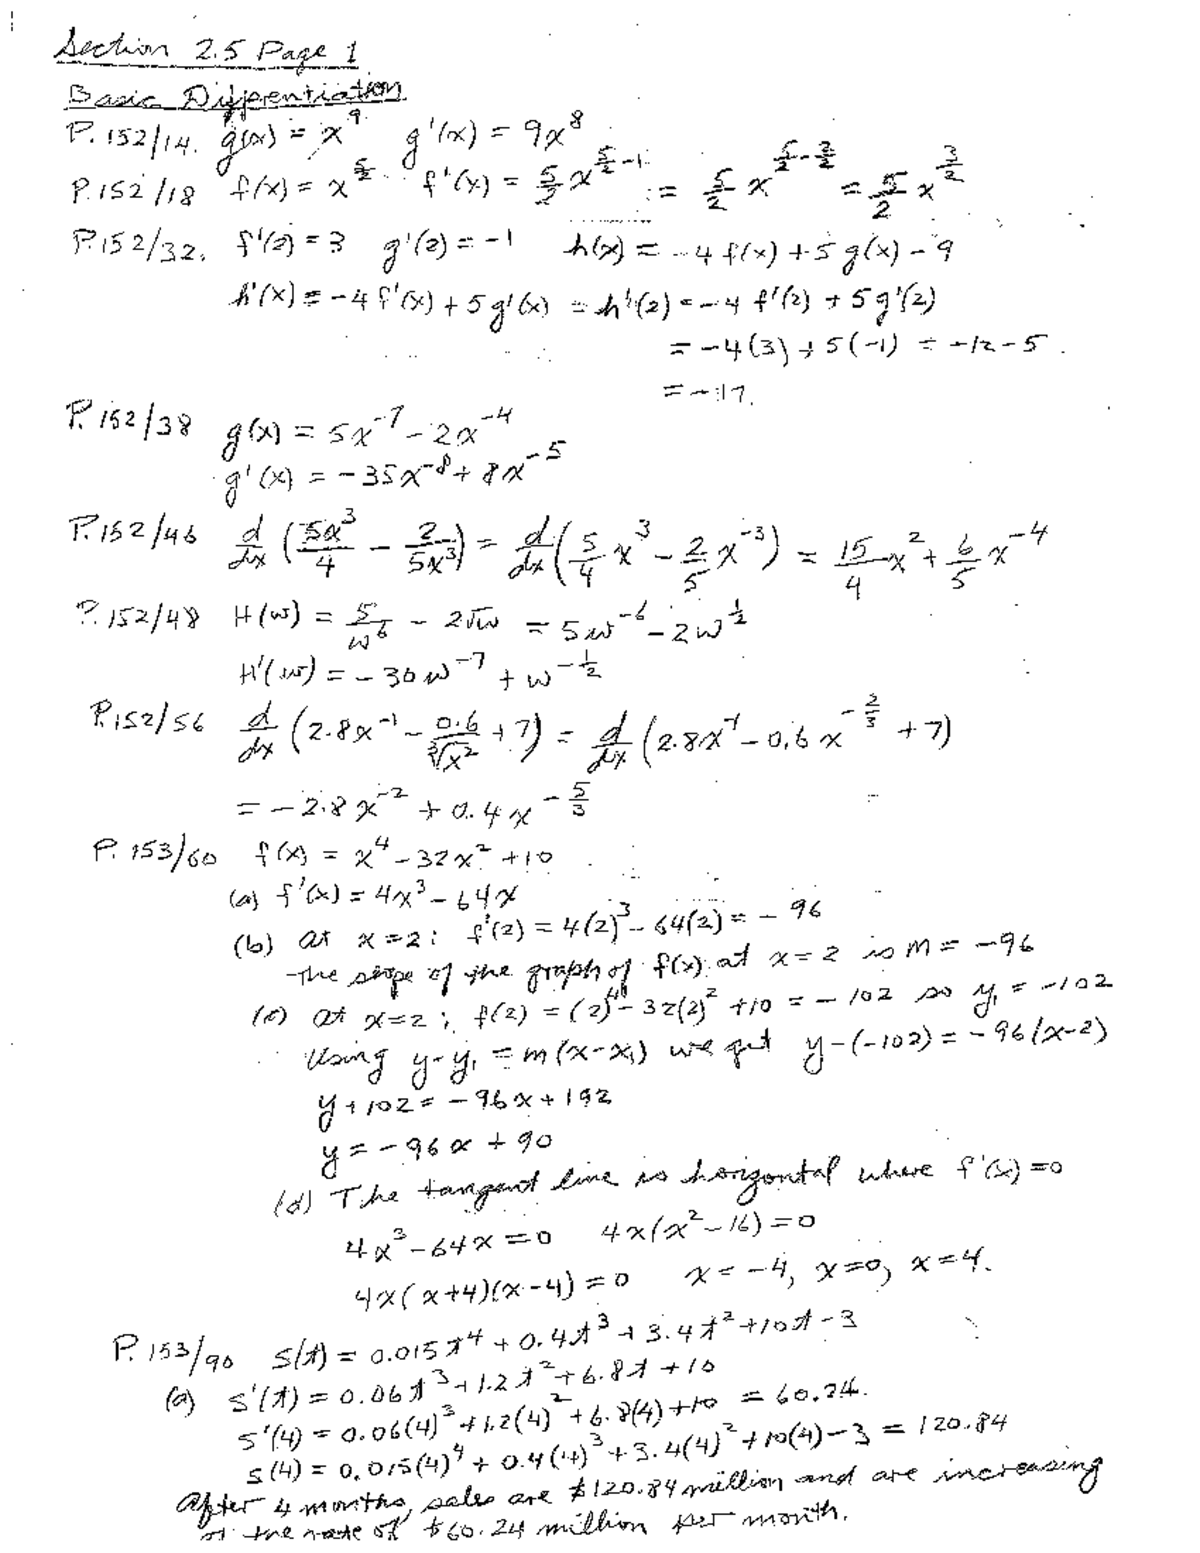 Section 2.5 Page 1
Basic Differentiation
P. 152/14. g(x) = x^9 g'(x) = 9x^8
P. 152/18 f(x) = x^{5/2} f'(x) = 5/2 x^{5/2 - 1} = 5/2 x^{5/2 - 2/2} = 5/2 x^{3/2}
P. 152/32. f'(2) = 3 g'(2) = -1 h(x) = -4 f(x) + 5 g(x) - 9
h'(x) = -4 f'(x) + 5 g'(x) = h'(2) = -4 f'(2) + 5 g'(2)
= -4(3) + 5(-1) = -12 - 5
= -17.
P. 152/38 g(x) = 5x^{-7} - 2x^{-4}
g'(x) = -35x^{-8} + 8x^{-5}
P. 152/46 d/dx (5x^3/4 - 2/5x^3) = d/dx (5/4 x^3 - 2/5 x^{-3}) = 15/4 x^2 + 6/5 x^{-4}
P. 152/48 H(w) = 5/w^6 - 2√w = 5w^{-6} - 2w^{1/2}
H'(w) = -30w^{-7} + w^{-1/2}
P. 152/56 d/dx (2.8x^{-1} - 0.6/∛x^2 + 7) = d/dx (2.8x^{-1} - 0.6x^{-2/3} + 7)
= -2.8x^{-2} + 0.4x^{-5/3}
P. 153/60 f(x) = x^4 - 32x^2 + 10
(a) f'(x) = 4x^3 - 64x
(b) at x = 2: f'(2) = 4(2)^3 - 64(2) = -96
The slope of the graph of f(x) at x = 2 is m = -96
(c) at x = 2; f(2) = (2)^4 - 32(2)^2 + 10 = -102 so y₁ = -102
Using y - y₁ = m(x - x₁) we get y - (-102) = -96(x - 2)
y + 102 = -96x + 192
y = -96x + 90
(d) The tangent line is horizontal where f'(x) = 0
4x^3 - 64x = 0 4x(x^2 - 16) = 0
4x(x + 4)(x - 4) = 0 x = -4, x = 0, x = 4.
P. 153/90 S(t) = 0.015t^4 + 0.4t^3 + 3.4t^2 + 10t - 3
(a) S'(t) = 0.06t^3 + 1.2t^2 + 6.8t + 10
S'(4) = 0.06(4)^3 + 1.2(4)^2 + 6.8(4) + 10 = 60.24.
S(4) = 0.015(4)^4 + 0.4(4)^3 + 3.4(4)^2 + 10(4) - 3 = 120.84
After 4 months, sales are $120.84 million and are increasing
at the rate of $60.24 million per month.